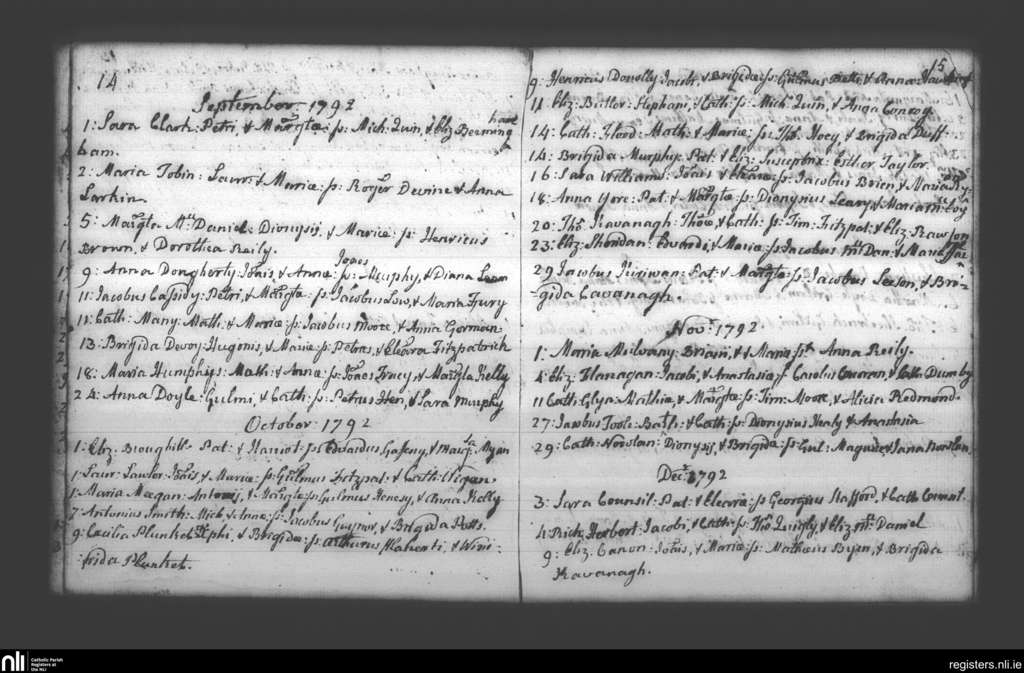 14
September 1792
1: Sara Clark: Petri, & Margtæ: ps: Mich: Quin, & Eliz Berming
ham.
2: Maria Tobin: Laur: & Mariæ: ps: Roger Devine & Anna
Larkin.
5: Margta Mc Daniel: Dionysij & Mariæ: ps: Henricus
Brown, & Dorothea Reily.
9: Anna Dongherty: Jonis, & Annæ: ps: Joaes Murphy, & Diana
11: Jacobus Cassidy: Petri, & Margtæ: ps: Jacobus Law, & Maria Fury
11: Cath: Many: Math: & Mariæ: ps: Jacobus Moore, & Anna Gorman
13: Brigida Devoy: Hugonis, & Mariæ: ps: Petrus, & Cleara Fitzpatrick
18: Maria Humphys: Math: & Annæ: ps: Joaes Tracy, & Margta Kelly
24: Anna Doyle: Gulmi, & Cath: ps: Petrus Hen, & Sara Murphy
October 1792
1: Eliz: Broughill: Pat: & Harriot: ps: Edvardus & Ryan
1: Laur: Lawlor: Johis, & Mariæ: ps: Gulmus Fitzpat: & Cath:
1: Maria Meegan: Antonij, & ps: Gulmus & Anna Kelly
7: Antonius Smith: Mich: & Annæ: ps: Jacobus Gaynor, & Brigida Potts.
9: Cæcilia Plunket: Stphi, & Brigidæ: ps: Arthurus & Wini-
frida Plunket.
15
9: Henricus Donolly: Jacobi, & Brigidæ: ps: Gulmus & Anna
11: Eliz: Butler: Stephani, & Cath: ps: Mich: Quin, & Anna Conroy
14: Cath: Flood: Math: & Mariæ: ps: Tho: Hoey, & Brigida Duff
14: Brigida Murphy: Pat: & Eliz: Susceptrix Esther Taylor.
16: Sara Williams: Joaes & ps: Jacobus Brien, & Maria
18: Anna Yore: Pat: & Margtæ: ps: Dionysius Leary, & Mariana
20: Tho: Kavanagh: Thoæ, & Cath: ps: Tim: Fitzpat: & Eliz: Rawson
23: Eliz: Sheridan: Edvardi, & Mariæ: ps: Jacobus Mc Dan: & Maria
29: Jacobus Kiriwan: Pat: & Margtæ: ps: Jacobus Leeson, & Bri-
-gida Cavanagh.
Novr: 1792
1: Maria Mulvany: Briani, & Mariæ ps: Anna Reily.
4: Eliz: Flanagan: Jacobi, & Anastasiæ ps: Carolus Corcoran, & Cath: Dunaby
11: Cath: Glya: & Margtæ: ps: Tim: Moore, & Alicia Redmond.
27: Jacobus Tool: & Cath: ps: Dionysius Healy & Anastasia
29: Cath: Nowlan: Dionysij, & Brigidæ: ps: Gul: Maguire, & Jana Nowlan
Decr: 1792
3: Sara Counsil: Pat: & Clearæ: ps: Georgius Stafford, & Cath
4: Rich: Herbert: Jacobi, & Cath: ps: Tho: Quigly, & Eliz Mc Daniel
9: Eliz: Canon: Johis, & Mariæ: ps: Mathæus Byrn, & Brigida
Kavanagh.
nli
Catholic Parish
Registers at
the NLI
registers.nli.ie